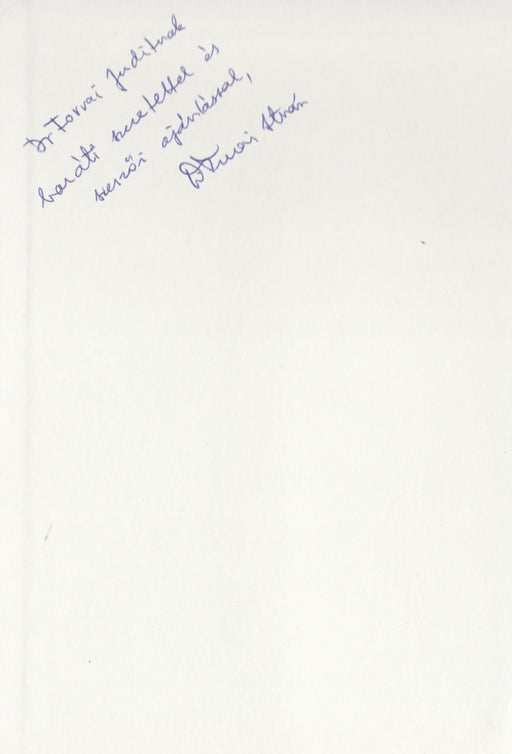 Dr Forvai Juditnak
baráti szeretettel és
szerzői ajánlással,
István